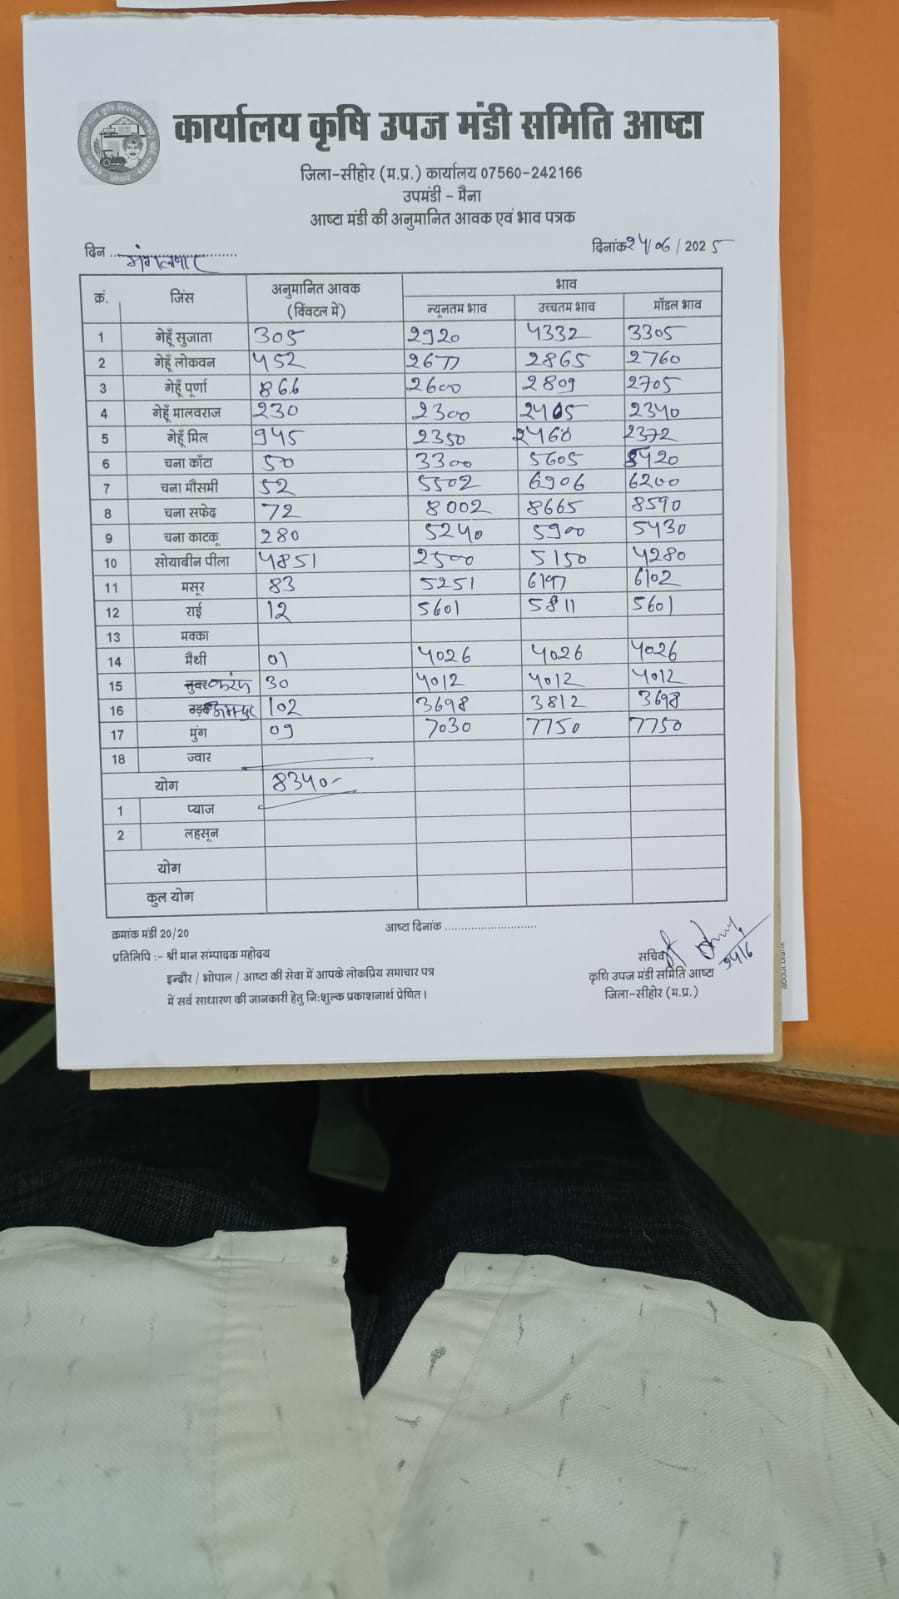 कार्यालय कृषि उपज मंडी समिति आष्टा
जिला-सीहोर (म.प्र.) कार्यालय 07560-242166
उपमंडी - मैना
आष्टा मंडी की अनुमानित आवक एवं भाव पत्रक
दिन मंगलवार दिनांक 24/06/2025
क्रं. जिंस अनुमानित आवक (क्विंटल में) भाव
न्यूनतम भाव उच्चतम भाव मॉडल भाव
1 गेहूँ सुजाता 305 2920 4332 3305
2 गेहूँ लोकवन 452 2677 2865 2760
3 गेहूँ पूर्णा 866 2600 2809 2705
4 गेहूँ मालवराज 230 2300 2405 2340
5 गेहूँ मिल 945 2350 2460 2372
6 चना काँटा 50 3300 5605 5420
7 चना मौसमी 52 5502 6906 6200
8 चना सफेद 72 8002 8665 8590
9 चना काटकू 280 5240 5900 5430
10 सोयाबीन पीला 4851 2500 5150 4280
11 मसूर 83 5251 6197 6102
12 राई 12 5601 5811 5601
13 मक्का
14 मैथी 01 4026 4026 4026
15 30 4012 4012 4012
16 102 3698 3812 3698
17 मुंग 09 7030 7750 7750
18 ज्वार
योग 8340-
1 प्याज
2 लहसून
योग
कुल योग
क्रमांक मंडी 20/20 आष्टा दिनांक
प्रतिलिपि :- श्री मान संम्पादक महोदय
इन्दौर / भोपाल / आष्टा की सेवा में आपके लोकप्रिय समाचार पत्र
में सर्व साधारण की जानकारी हेतु नि:शुल्क प्रकाशनार्थ प्रेषित।
सचिव
24/6
कृषि उपज मंडी समिति आष्टा
जिला-सीहोर (म.प्र.)